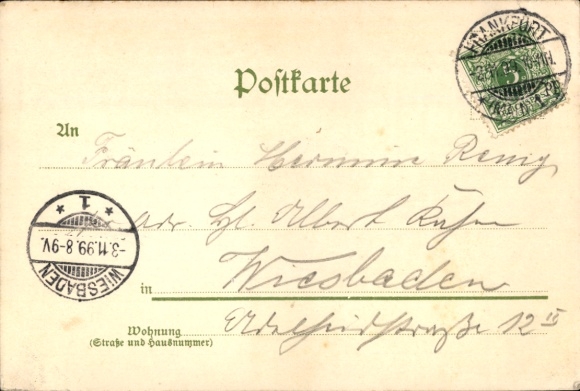 FRANKFURT
5
Postkarte
An
Fräulein Hermine Renig
adr. Albert
1
-3.11.99.8-9V.
WIESBADEN
in Wiesbaden
Wohnung
(Straße und Hausnummer)
Adelheidstraße 12 III